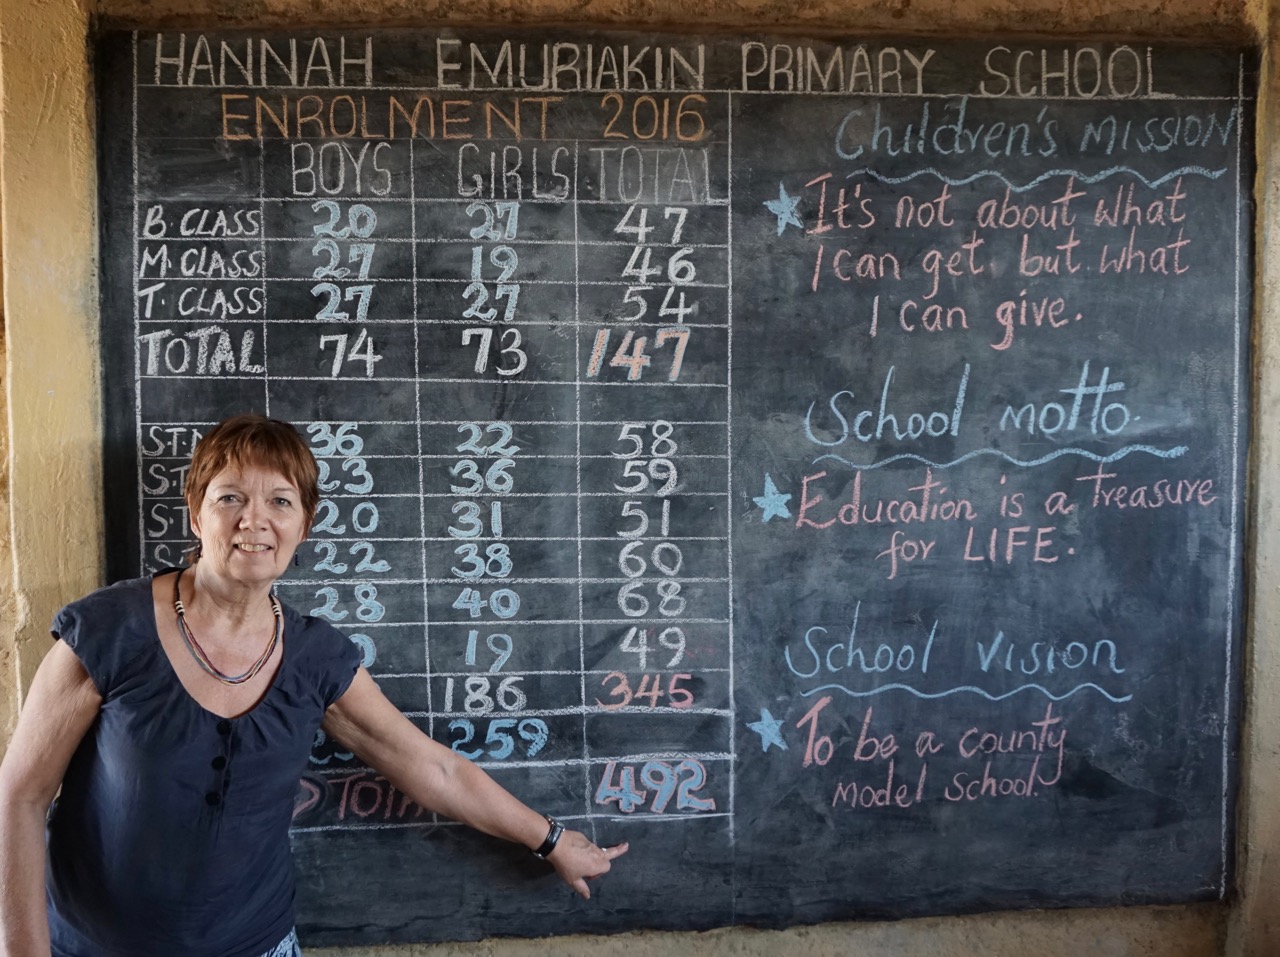 HANNAH EMURIAKIN PRIMARY SCHOOL
ENROLMENT 2016
BOYS GIRLS TOTAL
B. CLASS 20 27 47
M. CLASS 27 19 46
T. CLASS 27 27 54
TOTAL 74 73 147
36 22 58
23 36 59
20 31 51
22 38 60
28 40 68
19 49
186 345
259
492
Children's MISSION
It's not about what
I can get. but what
I can give.
School motto.
Education is a Treasure
for LIFE.
School vision
To be a county
model school.